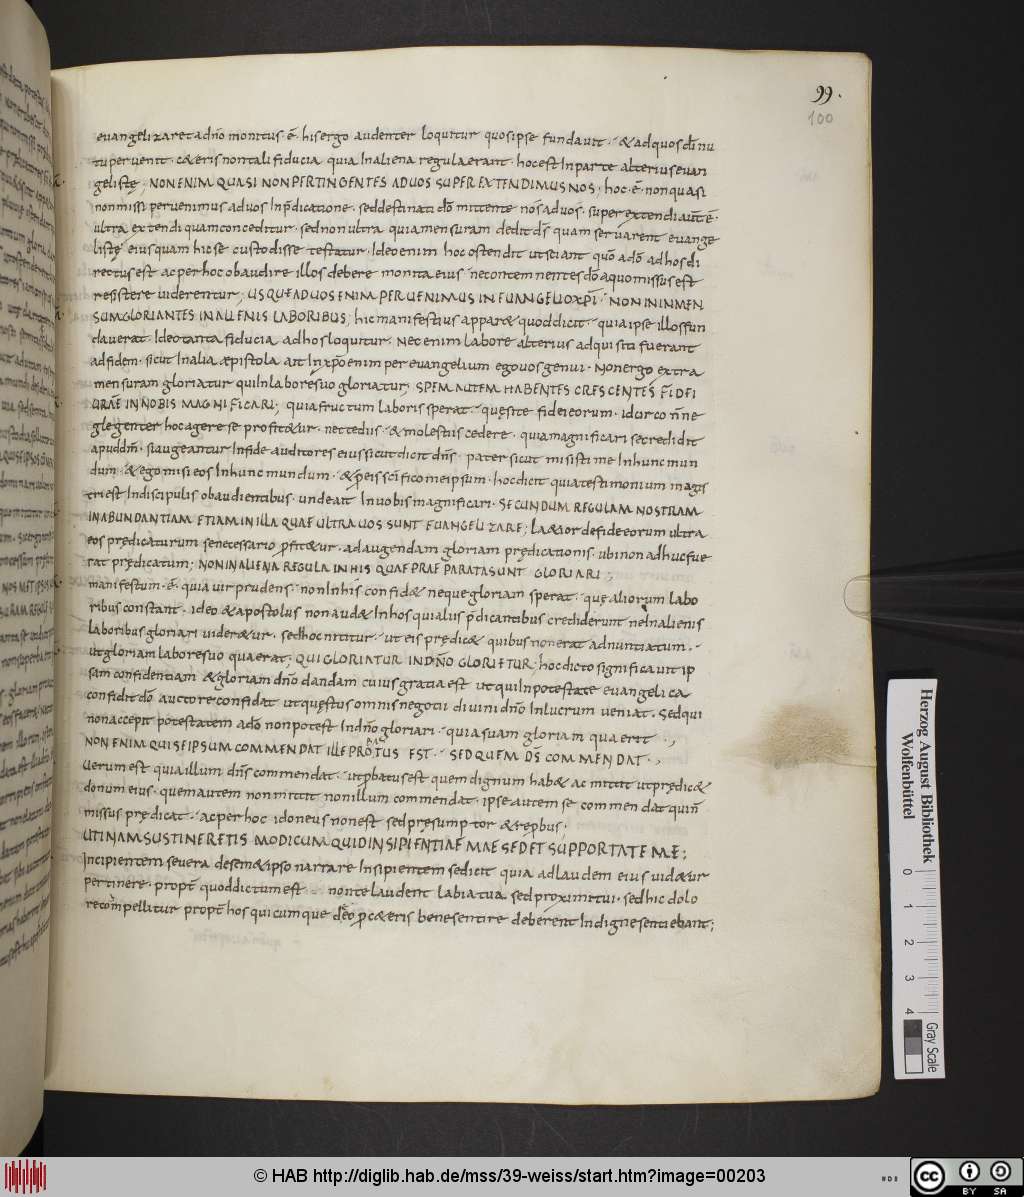 99.
100
euangelizaret a dn̄o monitus · ē · his ergo audenter loquitur quos ipse fundauit · & ad quos dī nu
tu peruenit · c&eris non tali fiducia quia In aliena regula erant · hoc est In parte alterius euan
gelistę; NON ENIM QUASI NON PERTINGENTES AD UOS SUPEREXTENDIMUS NOS · hoc · ē · non quasi
non missi peruenimus ad uos In p̄dicatione · sed destinati dō mittente nos ad uos · superextendi aut̄ ē ·
ultra extendi quam conceditur · sed non ultra quia mensuram dedit ds̄ quam seruarent euange
listę eius quam hic se custodisse testatur · Ideo enim hoc ostendit ut sciant quō a dō ad hos di
rectus est ac per hoc obaudire illos debere monita eius ne contemnentes dō a quo missus est
resistere uiderentur; USQUE AD UOS ENIM PERUENIMUS IN EUANGELIO XPĪ · NON IN INMEN
SUM GLORIANTES IN ALIENIS LABORIBUS; hic manifestius appar& quod dicit · quia ipse illos fun
dauerat · Ideo tanta fiducia ad hos loquitur · Nec enim labore alterius adquisiti fuerant
ad fidem · sicut In alia ępistola ait In xp̄o enim per euangelium ego uos genui · Non ergo extra
mensuram gloriatur qui In labore suo gloriatur; SPEM AUTEM HABENTES CRESCENTES FIDEI
URAĒ IN NOBIS MAGNIFICARI; quia fructum laboris sperat · quęsite fidei eorum · idcirco n̄ ne
glegenter hoc agere se profit&ur · nec tediis · & molestiis cedere · quia magnificari se credidit
apud dm̄ · si augeantur In fide auditores eius sicut dicit dn̄s · pater sicut misisti me In hunc mun
dum · & ego misi eos In hunc mundum · & p̄ eis sc̄ifico me ipsum · hoc dicit quia testimonium magis
tri est In discipulis obaudientibus · unde ait In uobis magnificari · SECUNDUM REGULAM NOSTRAM
IN ABUNDANTIAM ETIAM IN ILLA QUAE ULTRA UOS SUNT EUANGELIZARE; La&or de fide eorum ultra
eos prędicaturum se necessario p̄fit&ur · ad augendam gloriam prędicationis · ubi non adhuc fue
rat prędicatum; NON IN ALIENA REGULA IN HIS QUAE PRAEPARATA SUNT GLORIARI;
manifestum · ē · quia uir prudens · non In his confid& neque gloriam sperat · quę aliorum labo
ribus constant · ideo & apostolus non aud& In hos qui aliis p̄dicantibus crediderunt ne In alienis
laboribus gloriari uider&ur · sed hoc nititur · ut eis prędic& quibus non erat adnuntiatum ·
ut gloriam labore suo quaerat; QUI GLORIATUR IN DN̄O GLORIETUR; hoc dicto significauit ip
sam confidentiam & gloriam dn̄o dandam cuius gratia est ut qui In potestate euangelica
confidit dō auctore confidat ut quęstus omnis negotii diuini dn̄o In lucrum ueniat · Sed qui
non accepit potestatem a dō non potest In dn̄o gloriari · quia suam gloriam quaerit ·;
NON ENIM QUI SEIPSUM COMMENDAT ILLE PROBATUS EST · SED QUEM DS̄ COMMENDAT ·;
Uerum est quia illum dn̄s commendat · ut p̄batus est quem dignum hab& ac mittit ut prędic&
donum eius · quem autem non mittit non illum commendat · ipse autem se commendat qui n̄
missus prędicat · ac per hoc idoneus non est sed pręsumptor & rep̄bus;
UTINAM SUSTINERETIS MODICUM QUID INSIPIENTIAE MEAE SED ET SUPPORTATE ME;
Incipientem se uera de sem&ipso narrare Insipientem se dicit quia ad laudem eius uid&ur
pertinere · propt̄ quod dictum est · non te laudent labia tua sed proximi tui · sed hic dolo
re compellitur propt̄ hos qui cum que de eo p̄ c&eris bene sentire deberent Indigne sentiebant;
Herzog August Bibliothek
Wolfenbüttel
0 1 2 3 4
Gray Scale
© HAB http://diglib.hab.de/mss/39-weiss/start.htm?image=00203
cc BY SA